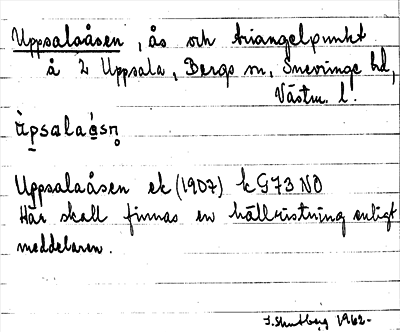 Uppsalaåsen, ås och triangelpunkt
å L Uppsala, Bergs sn, Snevringe hd,
Västm. l.
ùpsalaåsn̥
Uppsalaåsen ek (1907) k G73 NO
Här skall finnas en hällristning enligt
meddelaren.
1962-